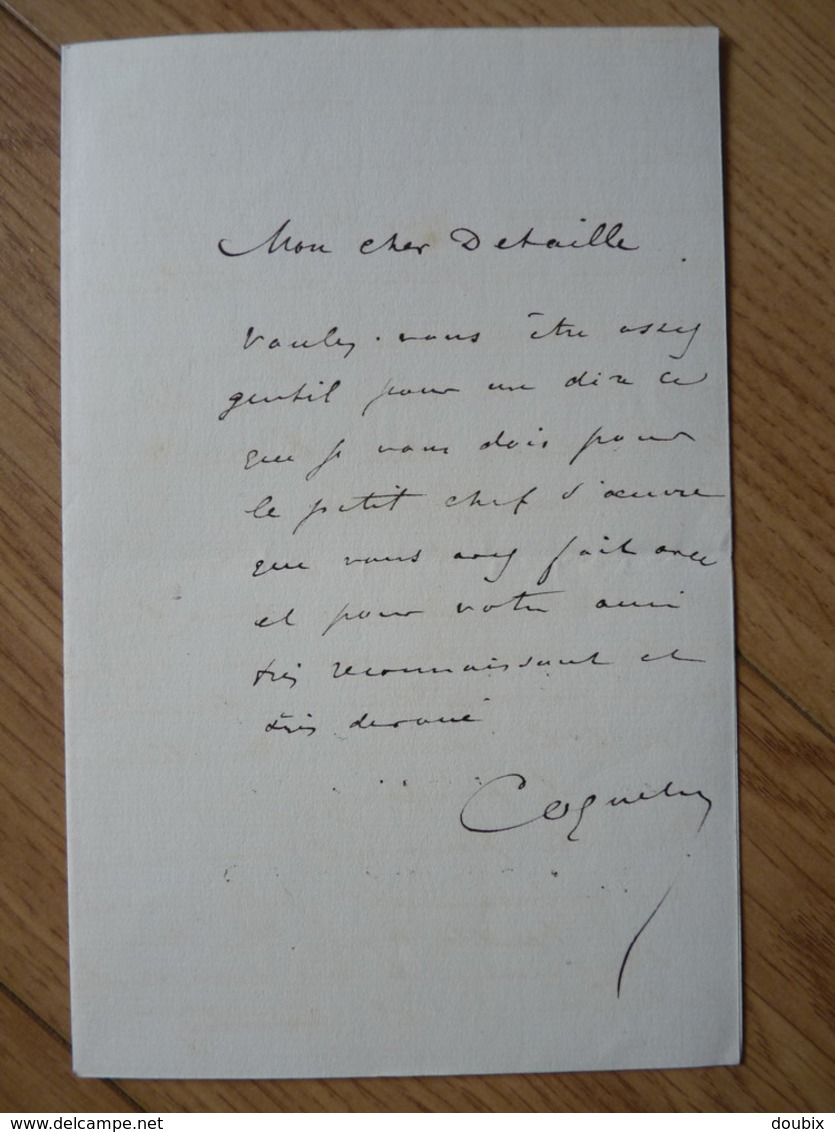 Mon cher Detaille
Voulez-vous être assez
gentil pour me dire ce
que je vous dois pour
le petit chef d'œuvre
que vous avez fait avec
et pour votre ami
très reconnaissant et
très dévoué
Coquelin
www.delcampe.net
doubix